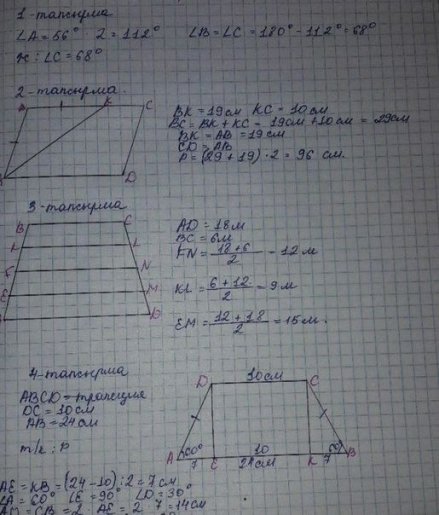 1-тапсырма
∠A = 56° · 2 = 112°   ∠B = ∠C = 180° - 112° = 68°
ж: ∠C = 68°
2-тапсырма.
K C
BK = 19 см KC = 10 см
BC = BK + KC = 19 см + 10 см = 29 см
BK = AB = 19 см
CD = AB
P = (29 + 19) · 2 = 96 см.
D
3-тапсырма
B C
L
F N
E M
D
AD = 18 м
BC = 6 м
FN = 18+6/2 - 12 м
KL = 6+12/2 = 9 м
EM = 12+18/2 = 15 м.
4-тапсырма
ABCD = трапеция
DC = 10 см
AB = 24 см
т/к: P
D 10 см C
A 60° 10 60° B
7 E 24 см K 7
AE = KB = (24-10) : 2 = 7 см
∠A = 60° ∠E = 90° ∠D = 30°
AD = CB = 2 · AE = 2 · 7 = 14 см